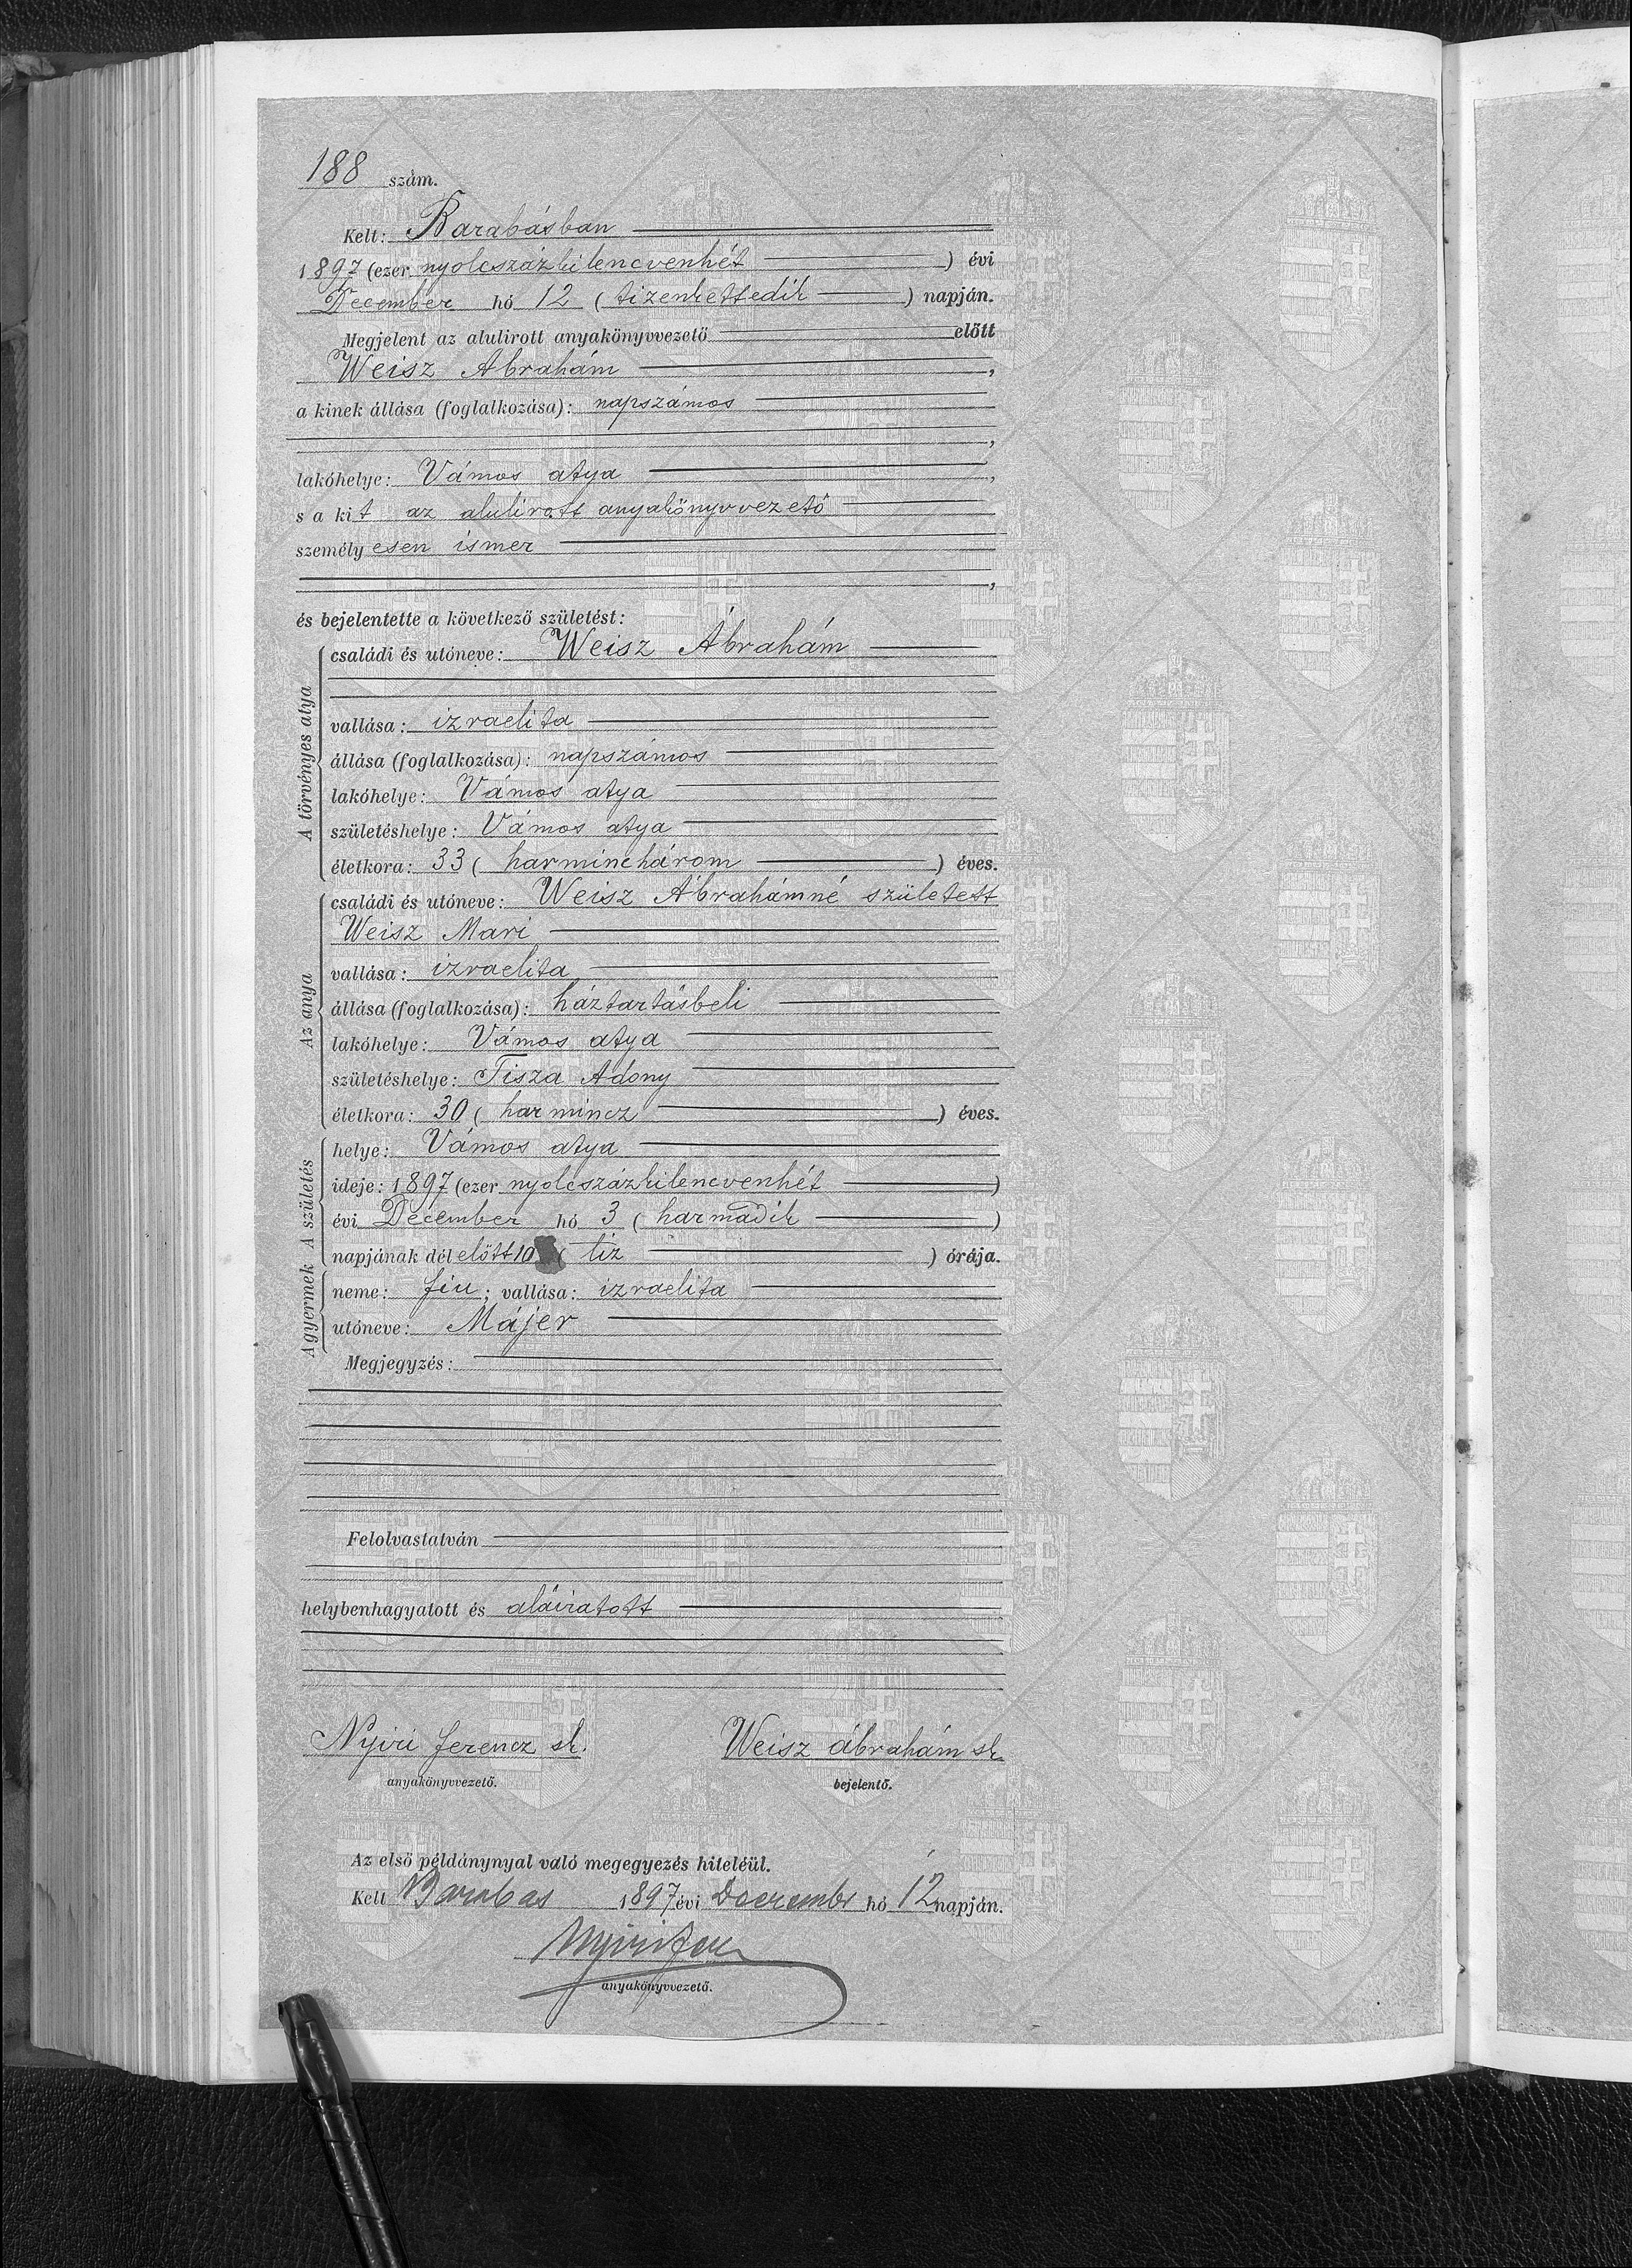 188 szám.
Kelt: Barabásban
1897 (ezer nyolcszázkilencvenhét) évi
December hó 12 (tizenkettedik) napján.
Megjelent az alulirott anyakönyvvezető előtt
Weisz Abrahám,
a kinek állása (foglalkozása): napszámos
,
lakóhelye: Vámos atya,
s a kit az alulirott anyakönyvvezető
személyesen ismer
,
és bejelentette a következő születést:
A törvényes atya
családi és utóneve: Weisz Ábrahám
vallása: izraelita
állása (foglalkozása): napszámos
lakóhelye: Vámos atya
születéshelye: Vámos atya
életkora: 33 (harminchárom) éves.
Az anya
családi és utóneve: Weisz Ábrahámné született
Weisz Mari
vallása: izraelita
állása (foglalkozása): háztartásbeli
lakóhelye: Vámos atya
születéshelye: Tisza Adony
életkora: 30 (harmincz) éves.
A születés
helye: Vámos atya
ideje: 1897 (ezer nyolcszázkilencvenhét)
évi December hó 3 (harmadik)
napjának délelőtt 10 (tiz) órája.
A gyermek
neme: fiu; vallása: izraelita
utóneve: Májer
Megjegyzés:
Felolvastatván
helybenhagyatott és aláiratott
Nyiri Ferencz sk. Weisz ábrahám sk
anyakönyvvezető. bejelentő.
Az első példánynyal való megegyezés hiteléül.
Kelt Barabas 1897 évi Decembr hó 12 napján.
Nyiri Fer
anyakönyvvezető.